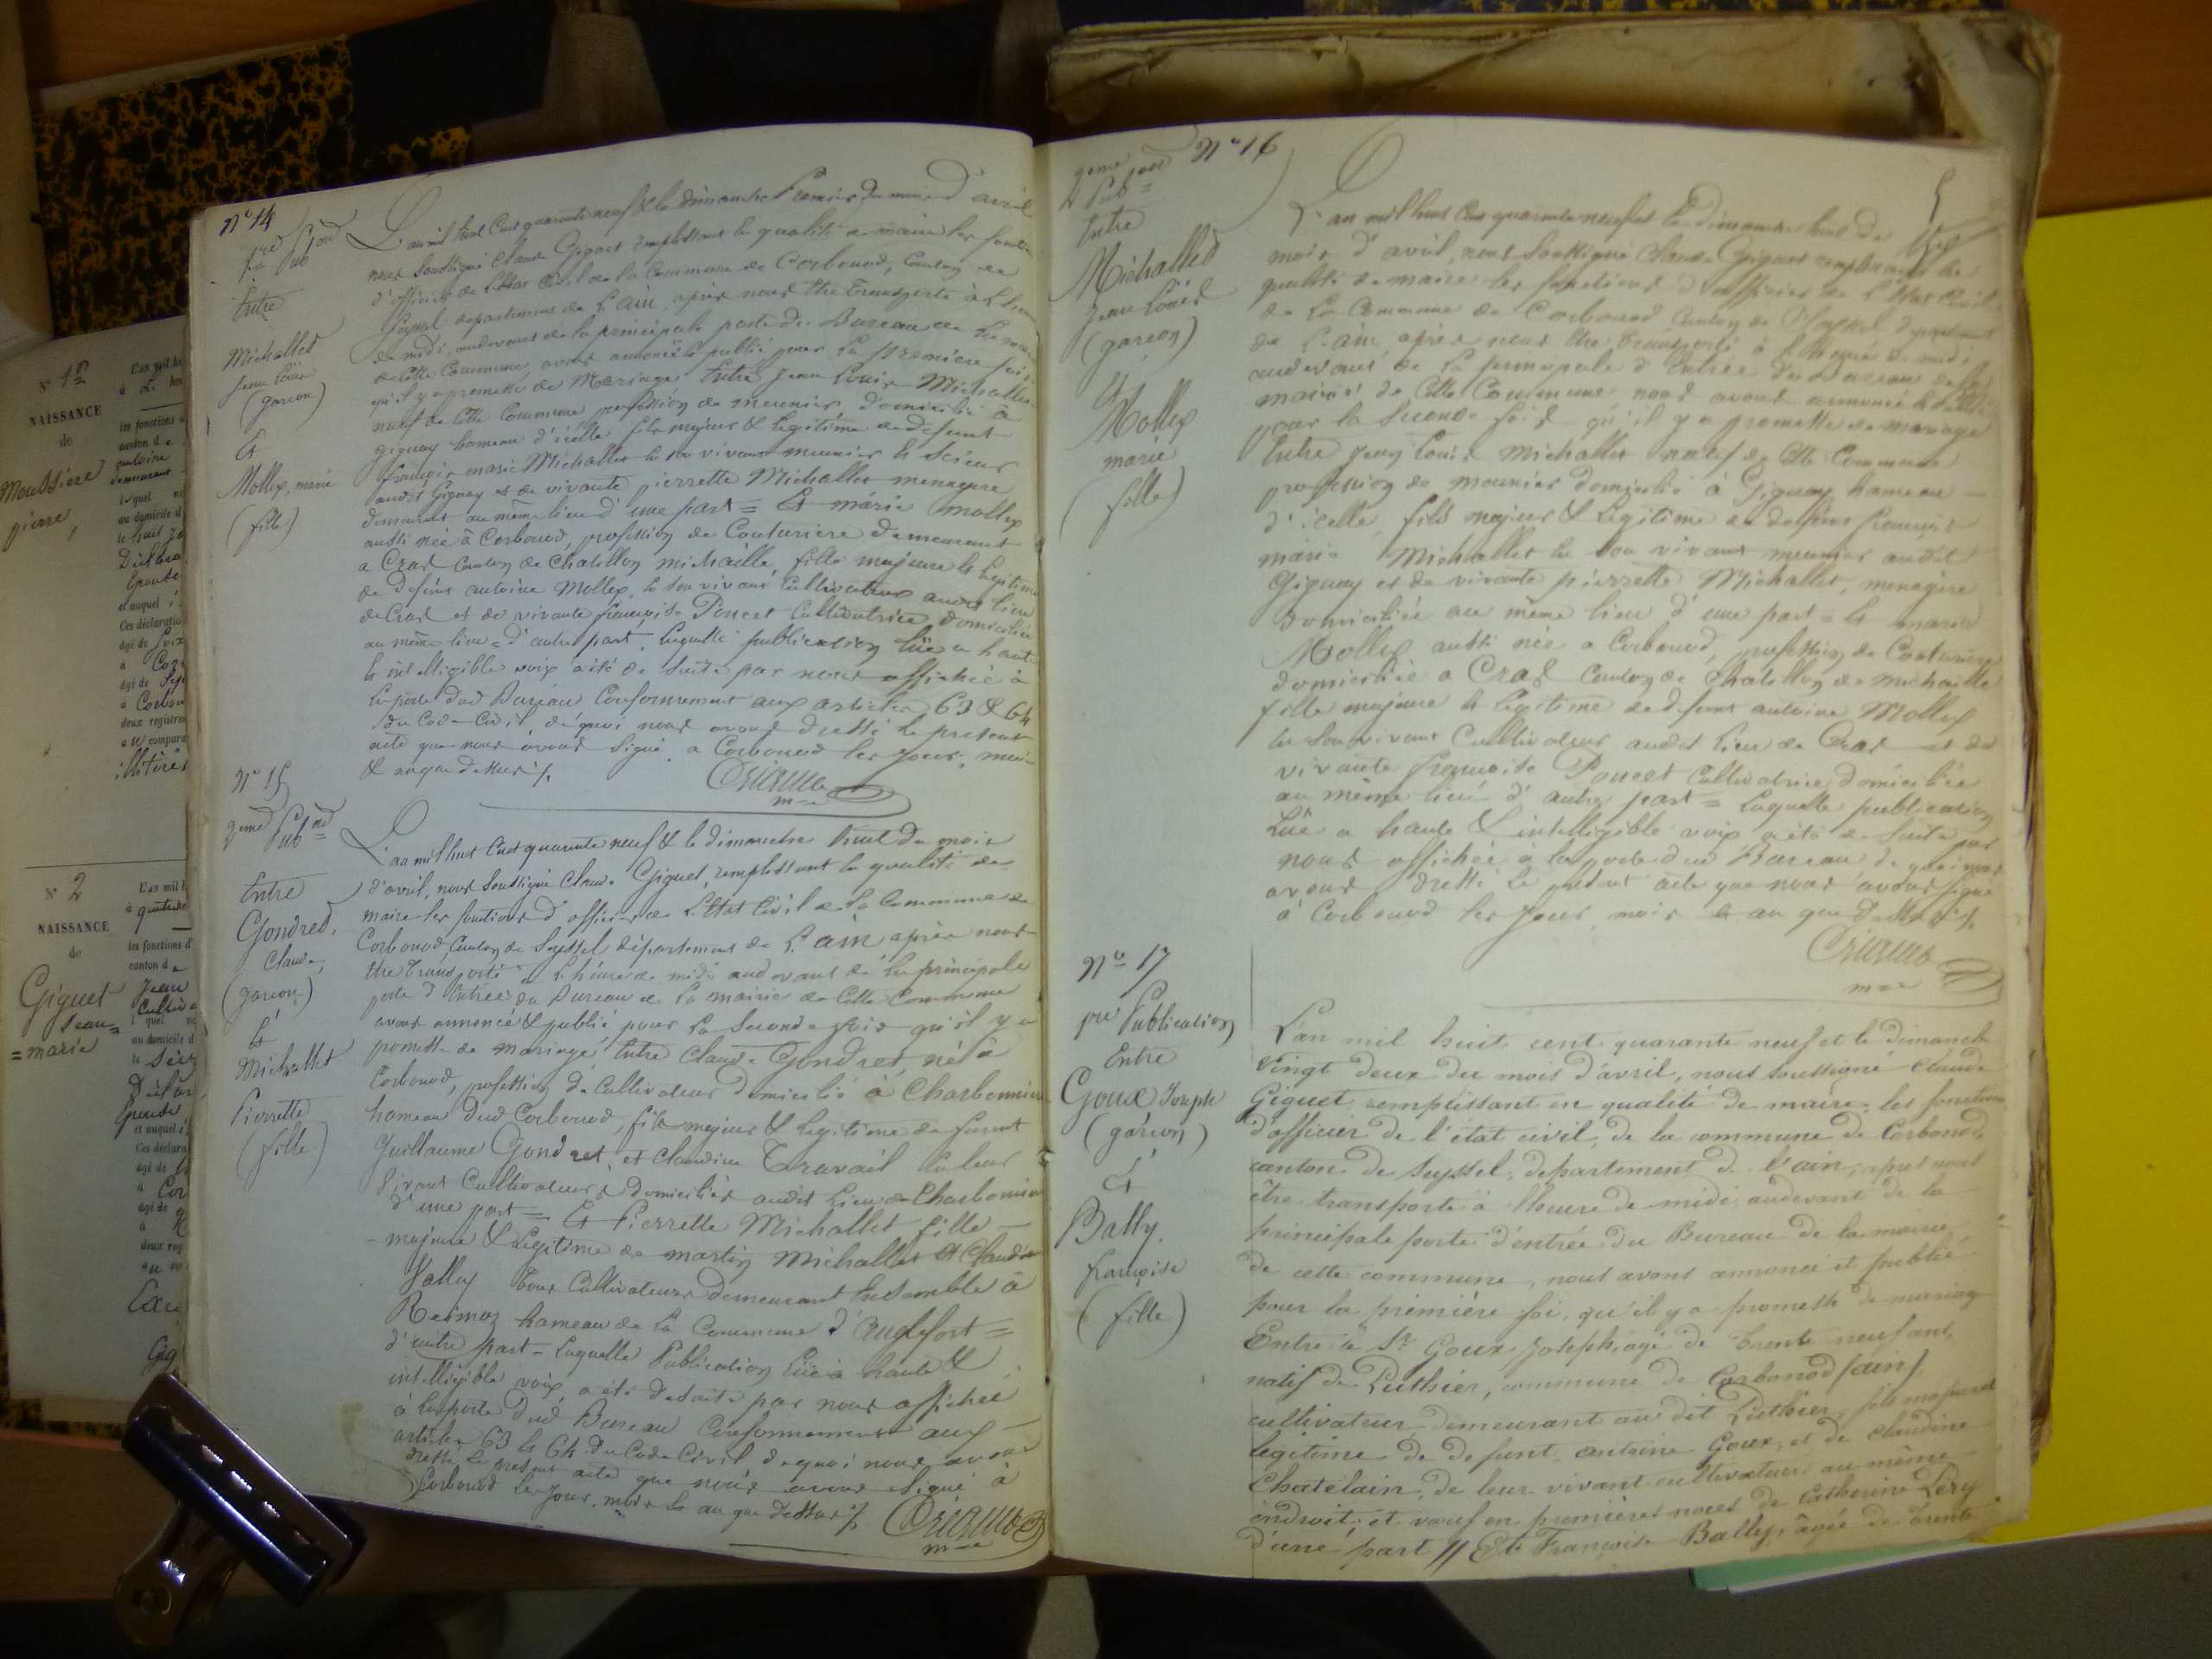 N° 14
1re Pub on
Entre
Michallet
Jean Louis
(garcon)
Et
Mollex, marie
(fille)
L'an mil huit Cent quarante neuf & le dimanche Premier du mois d'avril
nous Soussigné Claude Giguet remplissant la qualité de maire les fonctions
d'officier de l'Etat Civil de la Commune de Corbonod, Canton de
Seyssel departement de L'ain, après nous être Transporté à L'heure
de midi, audevant de la principale porte du Bureau de la mairie
de Cette Commune, avons annoncé & publié pour La premiere fois
qu'il y a promesse de Mariage Entre Jean Louis Michallet
natif de Cette Commune profession de meunier domicilié à
gignay hameau d'icelle fils majeur & Legitime de defunt
françois marie Michallet de son vivant meunier & Scieur
audit Gignay et de vivante pierrette Michallet menagere
demeurant au même lieu d'une part = Et marie mollex
aussi née à Corbonod, profession de Couturiere demeurant
a Craz Canton de Chatillon michaille, fille majeure & Legitime
de defunt antoine Mollex, de son vivant Cultivateur audit lieu
de Craz et de vivante françoise Poncet Cultivatrice, domiciliée
au même lieu = d'autre part, Laquelle publication Lüe a haute
& intelligible voix a été de Suite par nous affichée à
La porte dud Bureau Conformement aux articles 63 & 64
du Code Civil de quoi nous avons dressé le present
acte que nous avons Signé, a Corbonod les jour, mois
& an que dessus ./.
N° 15
2eme Pub on
Entre
Gondret,
Claude,
(garcon)
Et
Michallet
Pierrette
(fille)
L'an mil huit Cent quarante neuf & le dimanche huit du mois
d'avril, nous Soussigné Claude Giguet, remplissant la qualité de
maire les fonctions d'officier de L'Etat Civil de la Commune de
Corbonod, Canton de Seyssel département de L'ain, après nous
être Transporté à L'heure de midi audevant de la principale
porte d'Entrée du Bureau de la mairie de Cette Commune
avons annoncé & publié pour La Seconde fois qu'il y a
promesse de mariage, Entre Claude Gondret, né à
Corbonod, profession de Cultivateur domicilié à Charbonniere
hameau dud Corbonod, fils majeur & Legitime de furent
Guillaume Gondret, et Claudine Travail de leur
vivant Cultivateurs domiciliés audit lieu de Charbonniere
d'une part = Et Pierrette Michallet fille
majeure & Legitime de martin Michallet et Claudine
Vallex Tous Cultivateurs demeurant Ensemble à
hameau de la Commune d'anglefort =
d'autre part = Laquelle Publication Lüe à haute &
intelligible voix, a été de suite par nous affichée
à la porte dud Bureau Conformement aux
articles 63 & 64 du Code Civil de quoi nous avons
dressé le present acte que nous avons Signé à
Corbonod les jour, mois & an que dessus ./.
N° 16
2eme Pub on
Entre
Michallet
Jean Louis
(garcon)
Et
Mollex
marie
(fille)
L'an mil huit Cent quarante neuf et le dimanche huit du
mois d'avril, nous Soussigné Claude Giguet remplissant la
qualité de maire les fonctions d'officier de L'Etat Civil
de La Commune de Corbonod Canton de Seyssel departement
de L'ain, après nous être Transporté à L'heure de midi
audevant de La principale d'Entrée du Bureau de la
mairie de Cette Commune, nous avons annoncé & publié
pour la Seconde fois qu'il y a promesse de mariage
Entre Jean Louis Michallet natif de Cette Commune
profession de meunier domicilié à Gignay hameau
d'icelle, fils majeur & Legitime de defunt françois
marie Michallet de Son vivant meunier audit
Gignay et de vivante pierrette Michallet, menagère
domiciliée au même lieu d'une part = Et marie
Mollex aussi née a Corbonod, profession de Couturiere
domiciliée a Craz Canton de Chatillon de michaille
fille majeure & Legitime de defunt antoine Mollex
de Son vivant Cultivateur audit lieu de Craz et de
vivante françoise Poncet Cultivatrice domiciliée
au même lieu d'autre part = Laquelle publication
Lüe a haute & intelligible voix a été de Suite par
nous affichée à la porte dud Bureau de quoi nous
avons dressé le présent acte que nous avons signé
à Corbonod les jour, mois & an que dessus ./.
N° 17
1re Publication
Entre
Goux Joseph
(garcon)
Et
Bally
françoise
(fille)
L'an mil huit cent quarante neuf et le dimanche
vingt deux du mois d'avril, nous soussigné Claude
Giguet remplissant en qualité de maire, les fonctions
d'officier de l'état civil, de la commune de Corbonod,
canton de Seyssel, departement de l'ain, après nous
être transporté à l'heure de midi, audevant de la
principale porte d'entrée du Bureau de la mairie
de cette commune, nous avons annoncé et publié
pour la première foi, qu'il y a promesse de mariage
Entre le Sr Goux, Joseph, agé de trente neuf ans,
natif de Puthier, commune de Corbonod (ain),
cultivateur, demeurant au dit Puthier, fils majeur et
legitime de defunt antoine Goux, et de claudine
Chatelain, de leur vivant cultivateur au même
endroit, et voeuf en premières noces de Catherine Lery
d'une part // Et Françoise Ballyp agée de trente
N° 1er
NAISSANCE
de
Moussiere
pierre,
N° 2
NAISSANCE
de
Giguet
Jean=
=marie